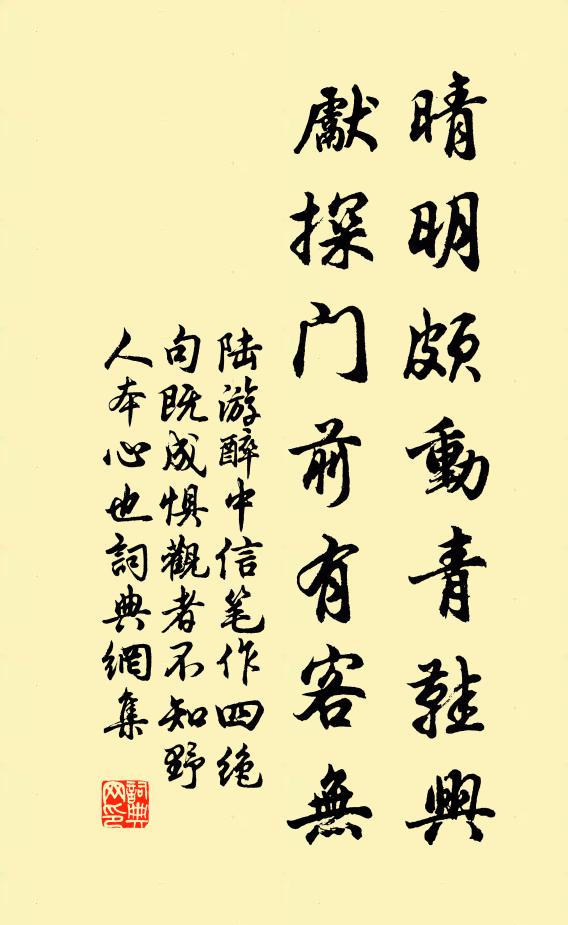 晴明頗動青鞋興
獻探门前有客無
陆游醉中信笔作四绝
句既成惧觀者不知野
人本心也詞典網集
詞典
网印